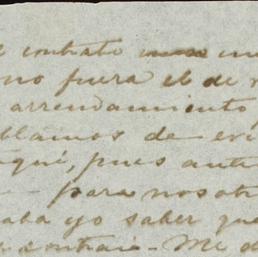 el contrato
no fuera el de
arrendamiento
blamos de
aqui, pues
para nosotr
aba yo saber que
contrai- Me d